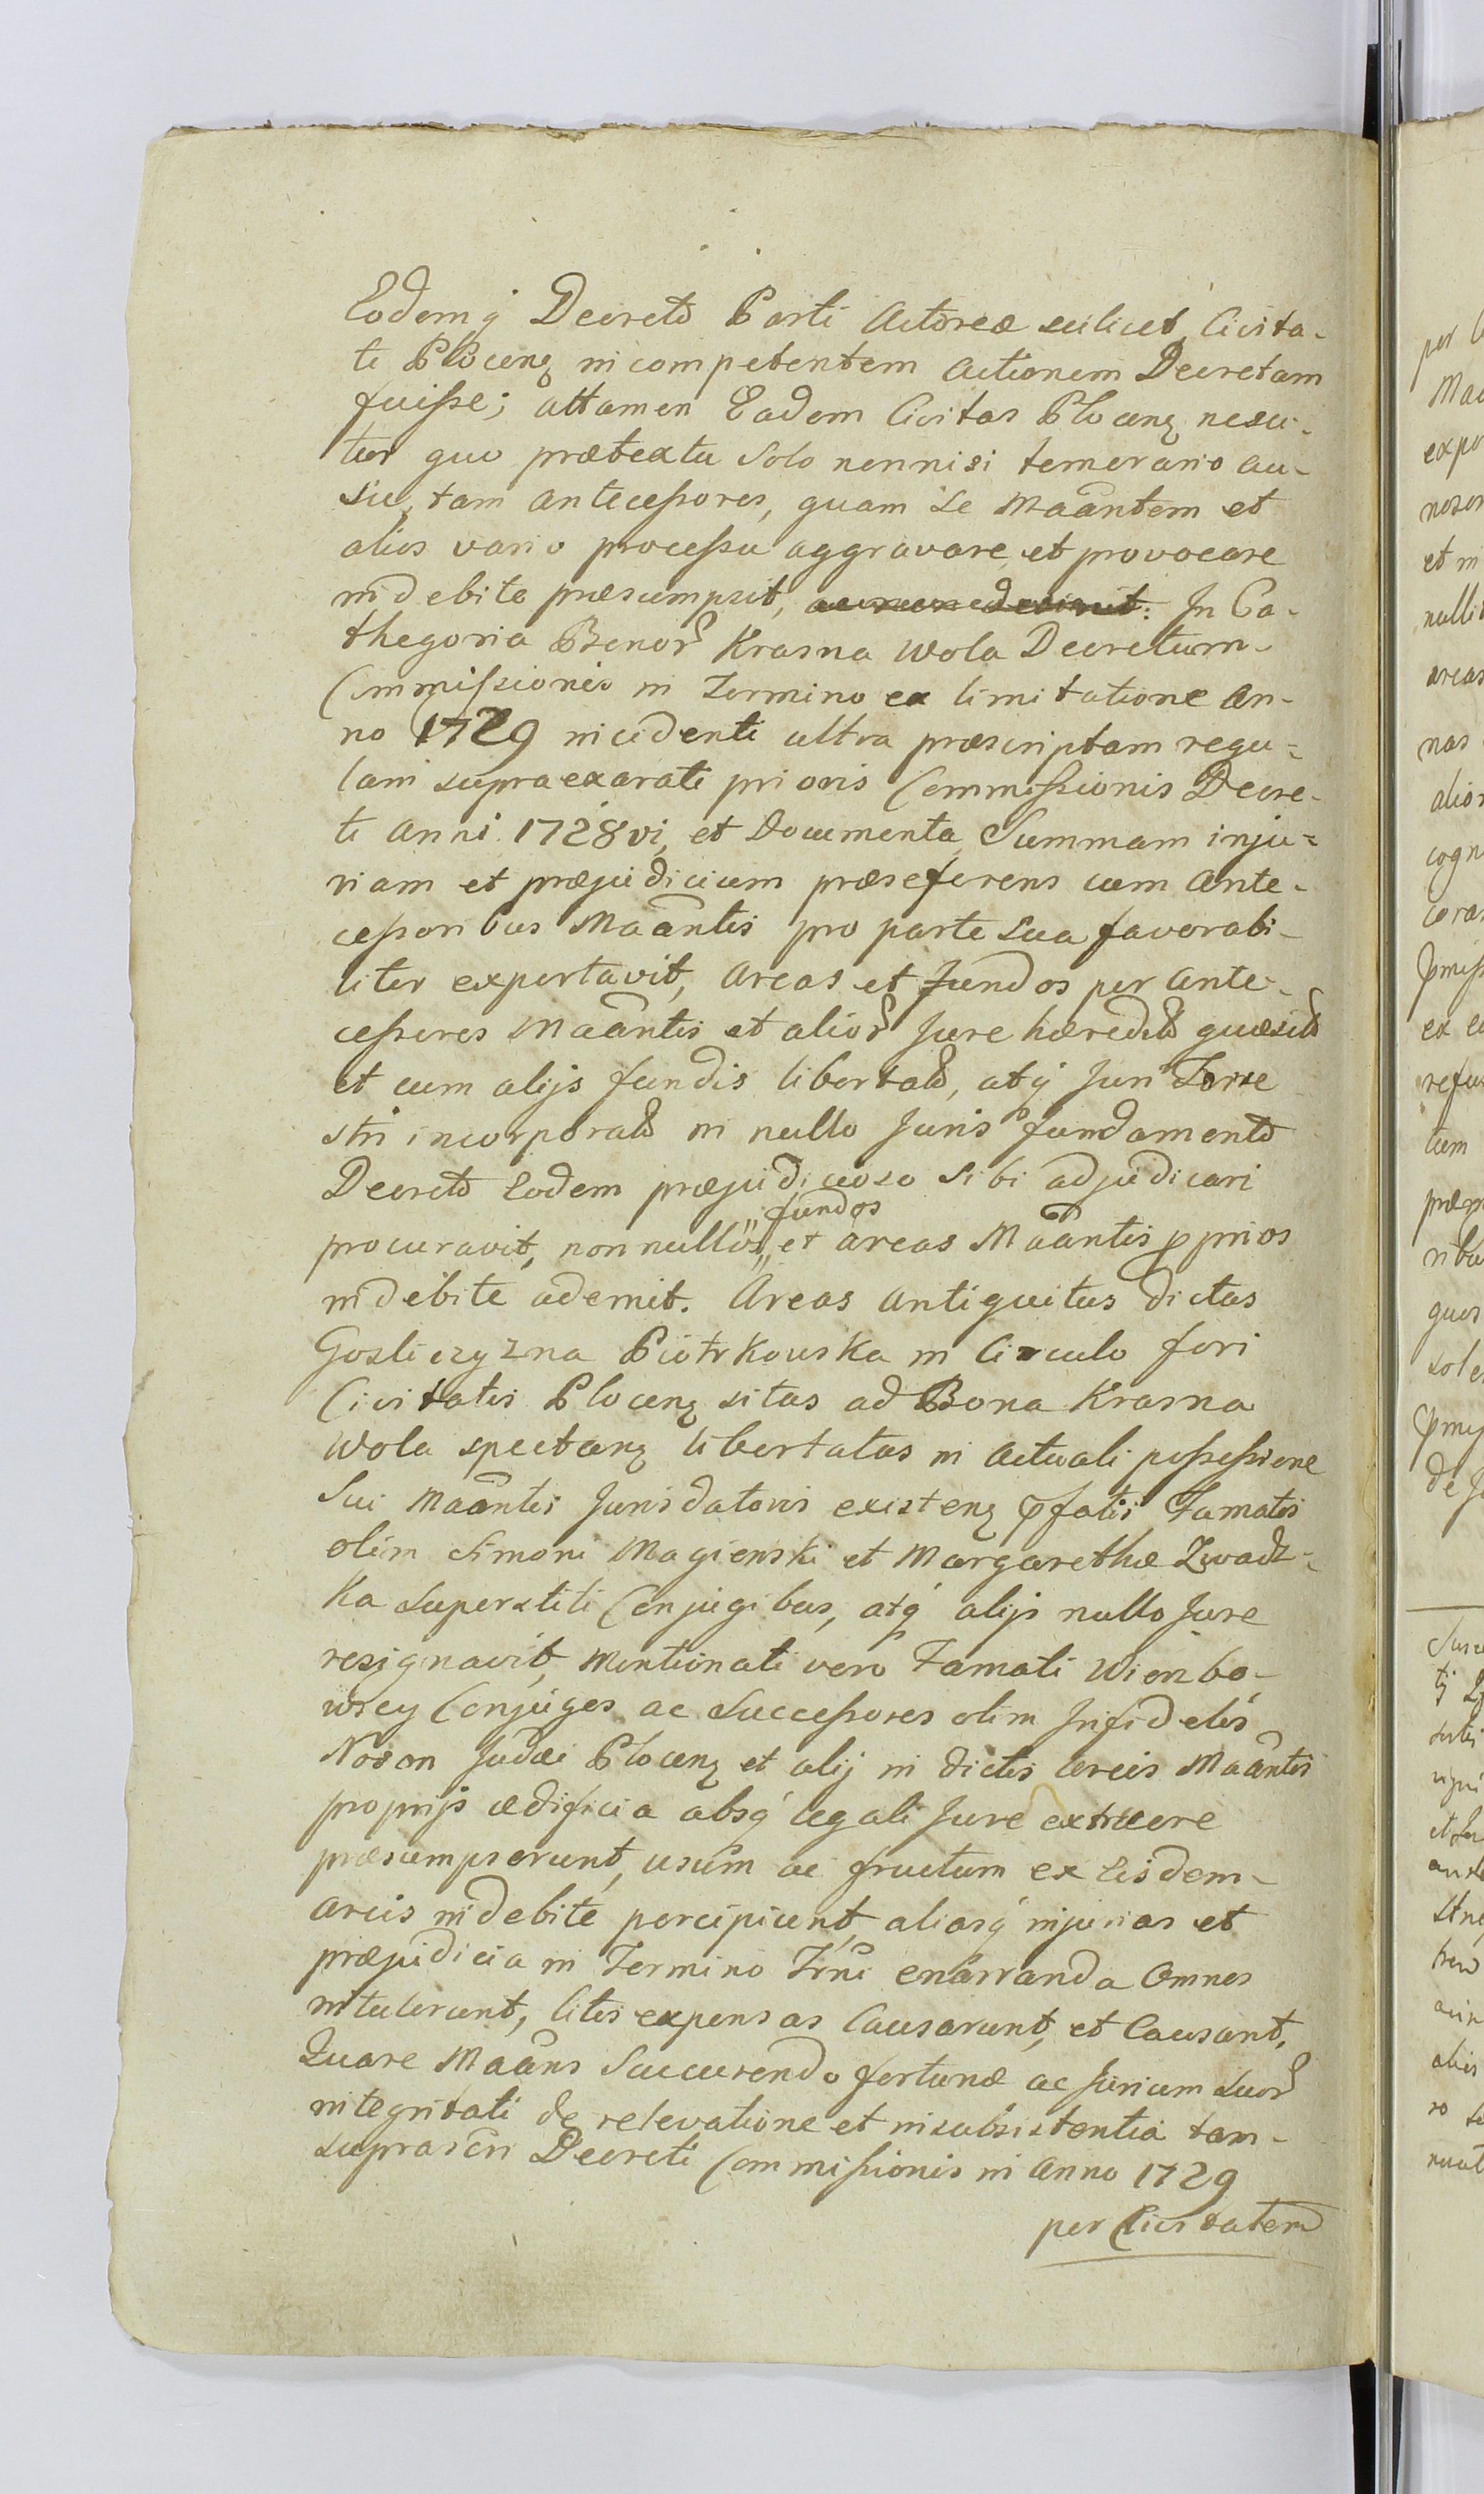 Eodemq Decreto Parti Actoreæ scilicet Civita-
ti Plocenȝ incompetentem Actionem Decretam
fuisse; attamen Eadem Civitas Plocenȝ nesci-
tur quo prætextu solo nonnisi temerario au-
su, tam antecessores, quam se Maãntem et
alios vario processu aggravare et provocare
indebite præsumpsit, In Ca-
thegoria Bonor Krasna Wola Decretum
Commissionis in Termino ex limitatione An-
no 1729 incidenti ultra præscriptam regu-
lam supraexarati prioris Commissionis Decre-
ti Anni 1728vi, et Documenta Summam inju-
riam et præjudicium præseferens cum Ante-
cessoribus Maãntis pro parte sua favorabi-
liter exportavit, Areas et fundos per Ante-
cessores Maãntis et alior Jure hæredit quæsit
et cum alijs fundis libertat, atq Juri Terre
stri incorporat in nullo Juris fundamento
Decreto Eodem præjudicioso sibi adjudicari
fundos
procuravit, nonnullos,, et areas Maãntis pprios
indebite ademit. Areas antiquitus dictas
Gosliczyzna Piotrkowska in Circulo fori
Civitatis Plocenȝ sitas ad Bona Krasna
Wola spectanȝ libertatas in actuali possessione
Sui Maãntis Jurisdatoris existenȝ pfatis Famatis
olim Simoni Magienski et Margarethæ Zwadz-
ka superstiti Conjugibus, atq alijs nullo Jure
resignavit, mentionati vero Famati Wierzbo-
wscy Conjuges ac Successores olim Infidelis
Noson Judæi Plocenȝ et alij in dictis areis Maãntis
proprijs ædificia absq legali Jure extruere
præsumpserunt, usum ac fructum ex Eisdem
areis indebite percipiunt, aliasq injurias et
præjudicia in Termino Trni enarranda Omnes
intulerunt, litis expensas Causarunt, et Causant,
Quare Maãns Succurendo fortunæ ac Jurium suor
integritati de relevatione et insubsistentia tam
suprascri Decreti Commissionis in Anno 1729
per Civitatem